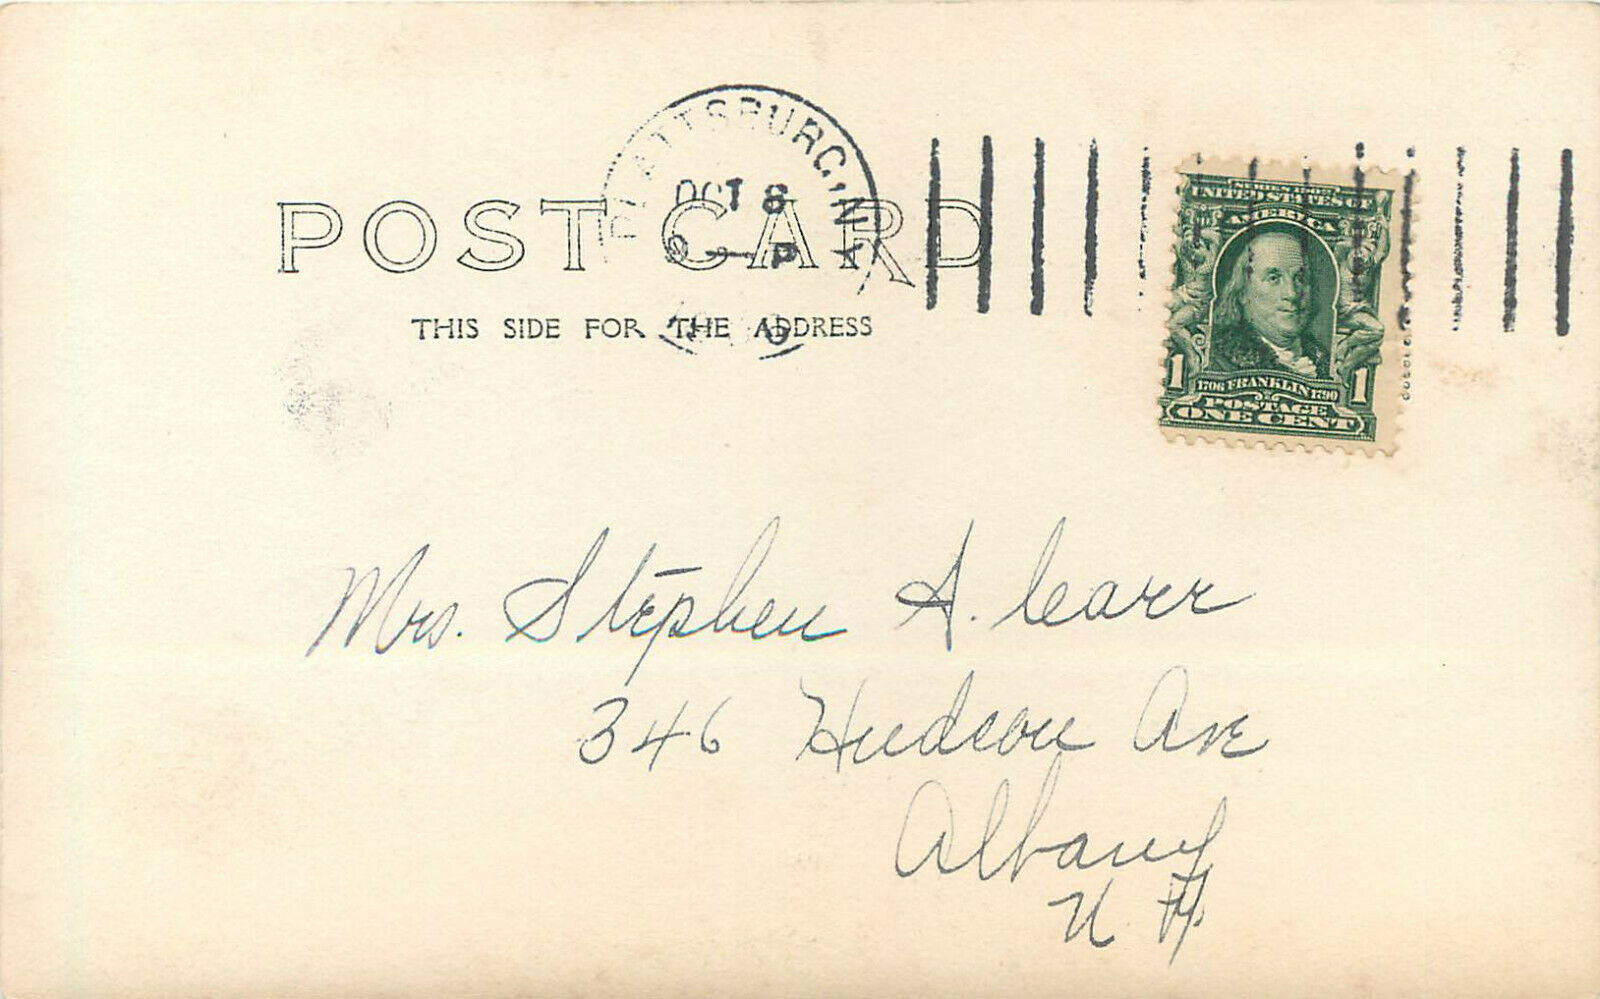 PLATTSBURG, N.Y.
OCT 8
POST CARD
THIS SIDE FOR THE ADDRESS
SERIES 1902
UNITED STATES OF
AMERICA
1 1706 FRANKLIN 1790 1
POSTAGE
ONE CENT
Mrs. Stephen A. Carr
346 Hudson Ave
Albany
N. Y.